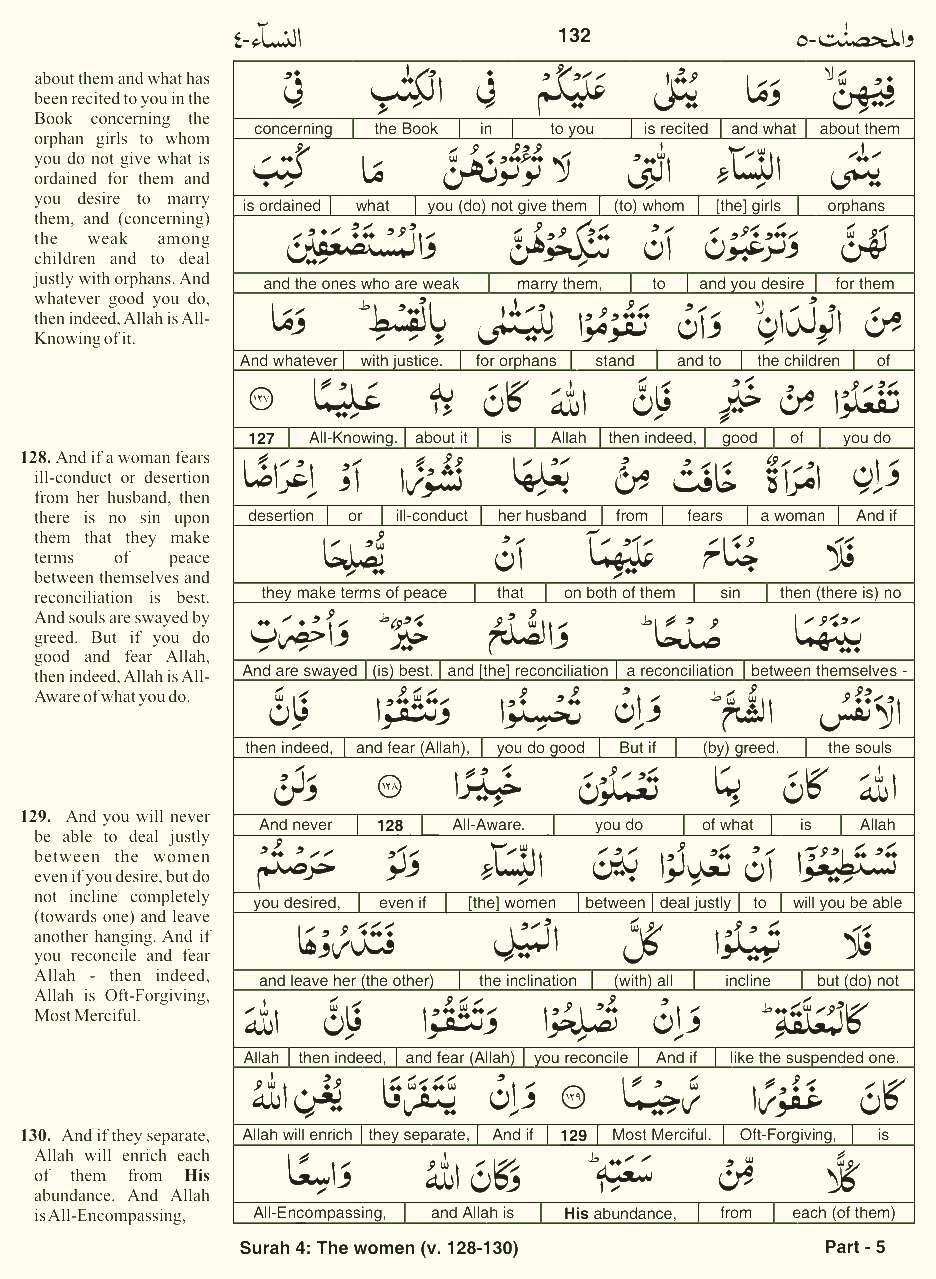 النسآء-٤ 132 والمحصنٰت-٥
about them and what has
been recited to you in the
Book concerning the
orphan girls to whom
you do not give what is
ordained for them and
you desire to marry
them, and (concerning)
the weak among
children and to deal
justly with orphans. And
whatever good you do,
then indeed, Allah is All-
Knowing of it.
128. And if a woman fears
ill-conduct or desertion
from her husband, then
there is no sin upon
them that they make
terms of peace
between themselves and
reconciliation is best.
And souls are swayed by
greed. But if you do
good and fear Allah,
then indeed, Allah is All-
Aware of what you do.
129. And you will never
be able to deal justly
between the women
even if you desire, but do
not incline completely
(towards one) and leave
another hanging. And if
you reconcile and fear
Allah - then indeed,
Allah is Oft-Forgiving,
Most Merciful.
130. And if they separate,
Allah will enrich each
of them from His
abundance. And Allah
is All-Encompassing,
فِيْهِنَّ ۙ وَمَا يُتْلٰى عَلَيْكُمْ فِي الْكِتٰبِ فِيْ
concerning the Book in to you is recited and what about them
يَتٰمَى النِّسَآءِ الّٰتِيْ لَا تُؤْتُوْنَهُنَّ مَا كُتِبَ
is ordained what you (do) not give them (to) whom [the] girls orphans
لَهُنَّ وَتَرْغَبُوْنَ اَنْ تَنْكِحُوْهُنَّ وَالْمُسْتَضْعَفِيْنَ
and the ones who are weak marry them, to and you desire for them
مِنَ الْوِلْدَانِ ۙ وَاَنْ تَقُوْمُوْا لِلْيَتٰمٰى بِالْقِسْطِ ؕ وَمَا
And whatever with justice. for orphans stand and to the children of
تَفْعَلُوْا مِنْ خَيْرٍ فَاِنَّ اللّٰهَ كَانَ بِهٖ عَلِيْمًا ١٢٧
127 All-Knowing. about it is Allah then indeed, good of you do
وَاِنِ امْرَاَةٌ خَافَتْ مِنْۢ بَعْلِهَا نُشُوْزًا اَوْ اِعْرَاضًا
desertion or ill-conduct her husband from fears a woman And if
فَلَا جُنَاحَ عَلَيْهِمَآ اَنْ يُّصْلِحَا
they make terms of peace that on both of them sin then (there is) no
بَيْنَهُمَا صُلْحًا ؕ وَالصُّلْحُ خَيْرٌ ؕ وَاُحْضِرَتِ
And are swayed (is) best. and [the] reconciliation a reconciliation between themselves -
الْاَنْفُسُ الشُّحَّ ؕ وَاِنْ تُحْسِنُوْا وَتَتَّقُوْا فَاِنَّ
then indeed, and fear (Allah), you do good But if (by) greed. the souls
اللّٰهَ كَانَ بِمَا تَعْمَلُوْنَ خَبِيْرًا ١٢٨ وَلَنْ
And never 128 All-Aware. you do of what is Allah
تَسْتَطِيْعُوْٓا اَنْ تَعْدِلُوْا بَيْنَ النِّسَآءِ وَلَوْ حَرَصْتُمْ
you desired, even if [the] women between deal justly to will you be able
فَلَا تَمِيْلُوْا كُلَّ الْمَيْلِ فَتَذَرُوْهَا
and leave her (the other) the inclination (with) all incline but (do) not
كَالْمُعَلَّقَةِ ؕ وَاِنْ تُصْلِحُوْا وَتَتَّقُوْا فَاِنَّ اللّٰهَ
Allah then indeed, and fear (Allah) you reconcile And if like the suspended one.
كَانَ غَفُوْرًا رَّحِيْمًا ١٢٩ وَاِنْ يَّتَفَرَّقَا يُغْنِ اللّٰهُ
Allah will enrich they separate, And if 129 Most Merciful. Oft-Forgiving, is
كُلًّا مِّنْ سَعَتِهٖ ؕ وَكَانَ اللّٰهُ وَاسِعًا
All-Encompassing, and Allah is His abundance, from each (of them)
Surah 4: The women (v. 128-130) Part - 5